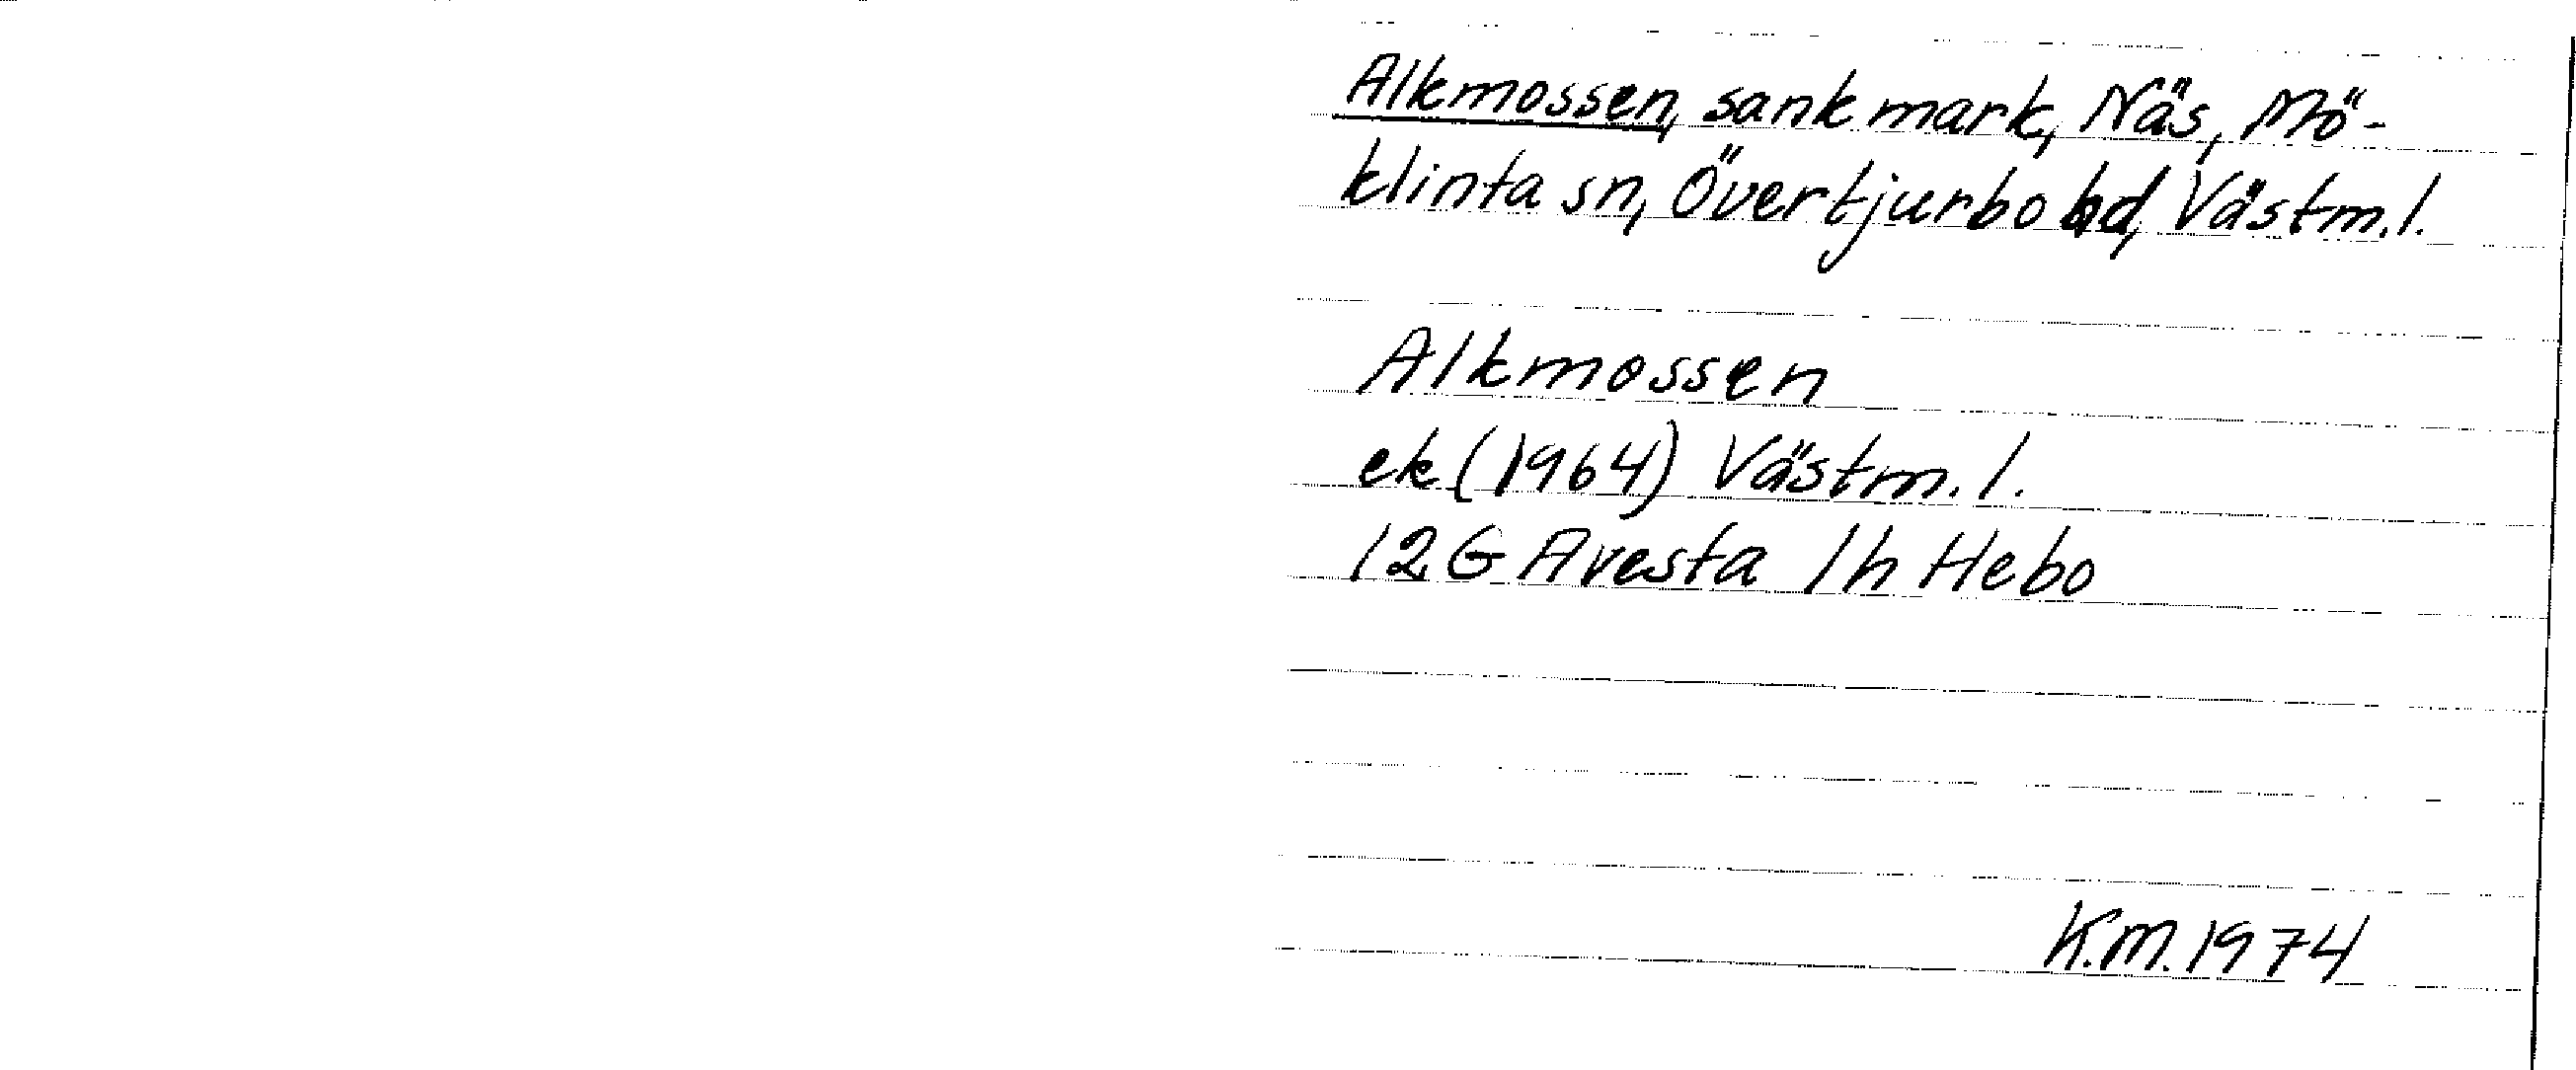 Alkmossen, sank mark, Näs, Mö-
klinta sn, Övertjurbo hd, Västm.l.
Alkmossen
ek (1964) Västm.l.
12G Avesta 1h Hebo
K.M. 1974